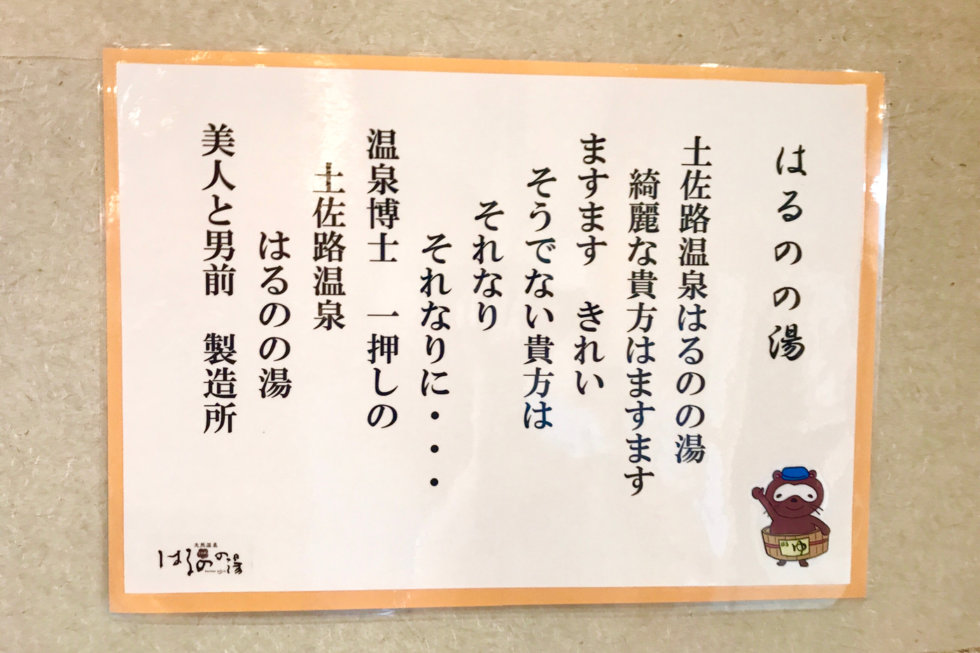 はるのの湯
土佐路温泉はるのの湯
綺麗な貴方はますます
ますます　きれい
そうでない貴方は
それなり
それなりに・・・
温泉博士　一押しの
土佐路温泉
はるのの湯
美人と男前　製造所
ゆ
天然温泉
はるのの湯